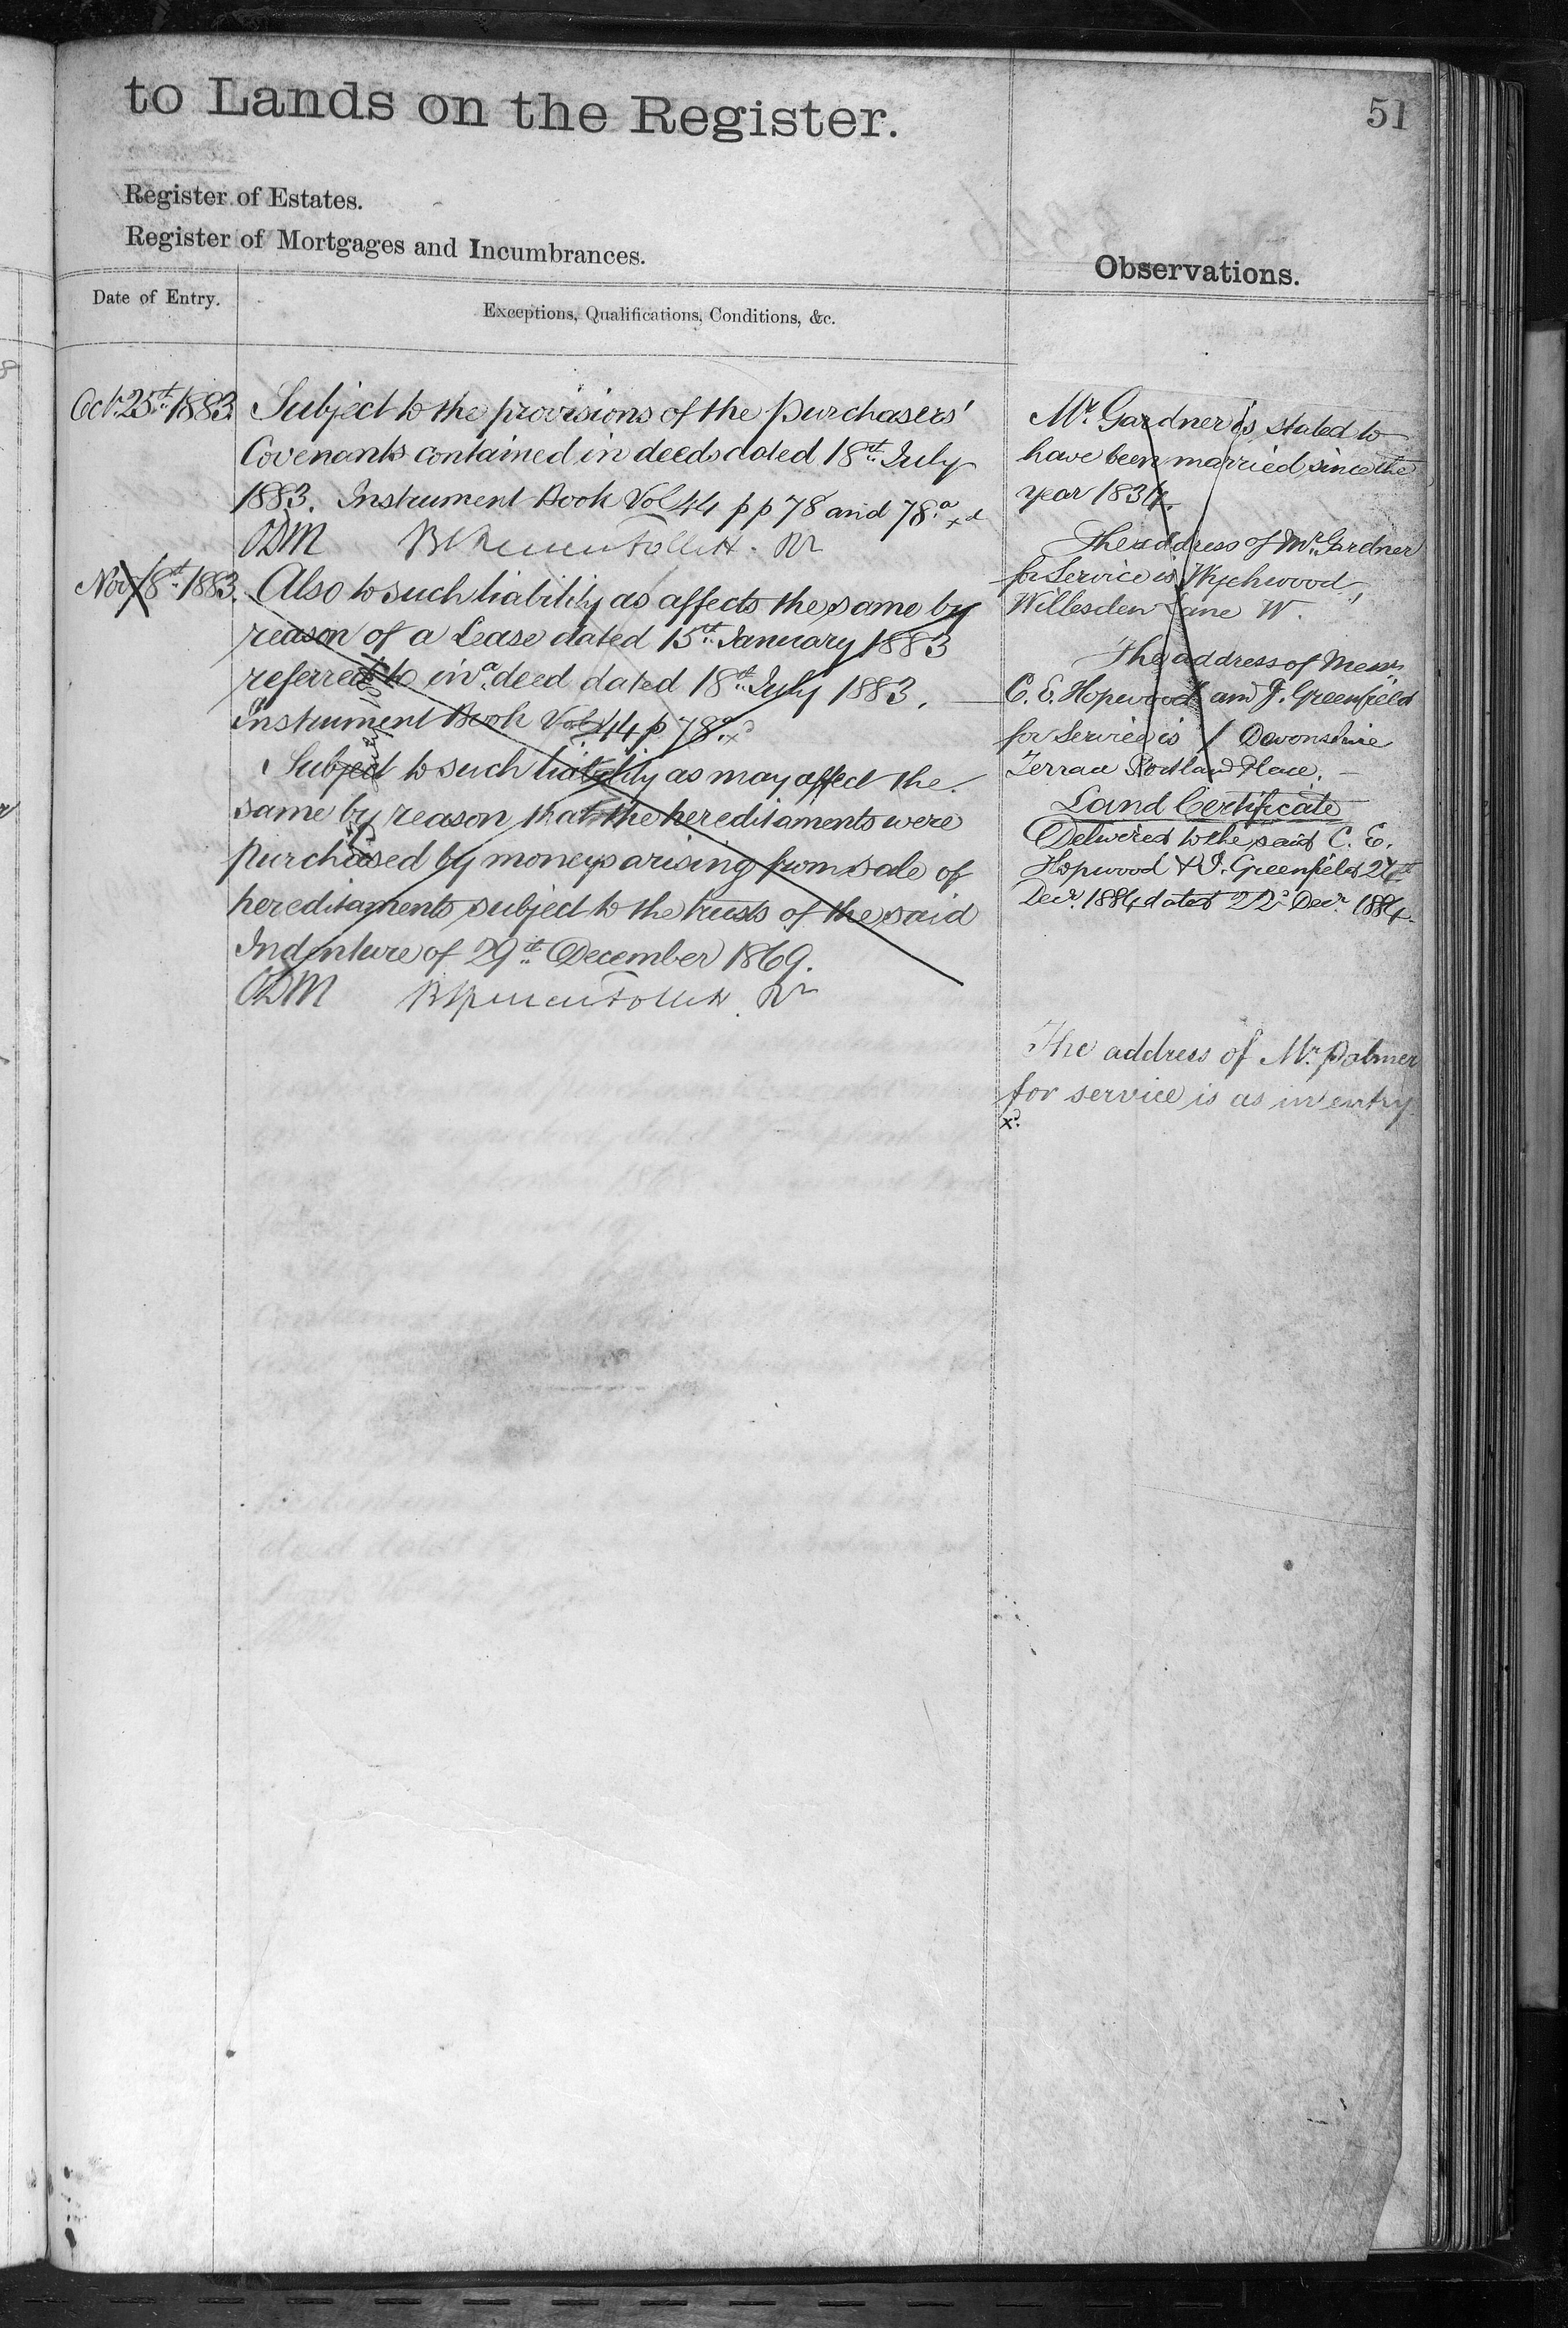 to Lands on the Register.
51
Register of Estates.
Register of Mortgages and Incumbrances.
Observations.
Date of Entry.
Exceptions, Qualifications, Conditions, &c.
Octr. 25th 1883.
Subject to the provisions of the Purchasers'
Covenants contained in deeds dated 18th July
1883. Instrument Book Vol 44 pp 78 and 78a xd
ODM Follett. Rr
Nov 8th 1883.
Also to such liability as affects the same by
reason of a Lease dated 15th January 1883
referred to in a deed dated 18th July 1883.
Instrument Book Vol 44 p 78a xd
Subject to such liability as may affect the
same by reason that the hereditaments were
purchased by moneys arising from sale of
hereditaments subject to the trusts of the said
Indenture of 29th December 1869.
ODM Follett. Rr
Mr. Gardner is stated to
have been married since the
year 1834.
The address of Mr. Gardner
for Service is Wychwood,
Willesden Lane W.
The address of Messrs
C. E. Hopwood and J. Greenfield
for Service is 1 Devonshire
Terrace Portland Place.
Land Certificate
Delivered to the said C. E.
Hopwood & J. Greenfield
Decr. 1884 dated 22d Decr. 1884.
The address of Mr. Palmer
for service is as in entry
xd.